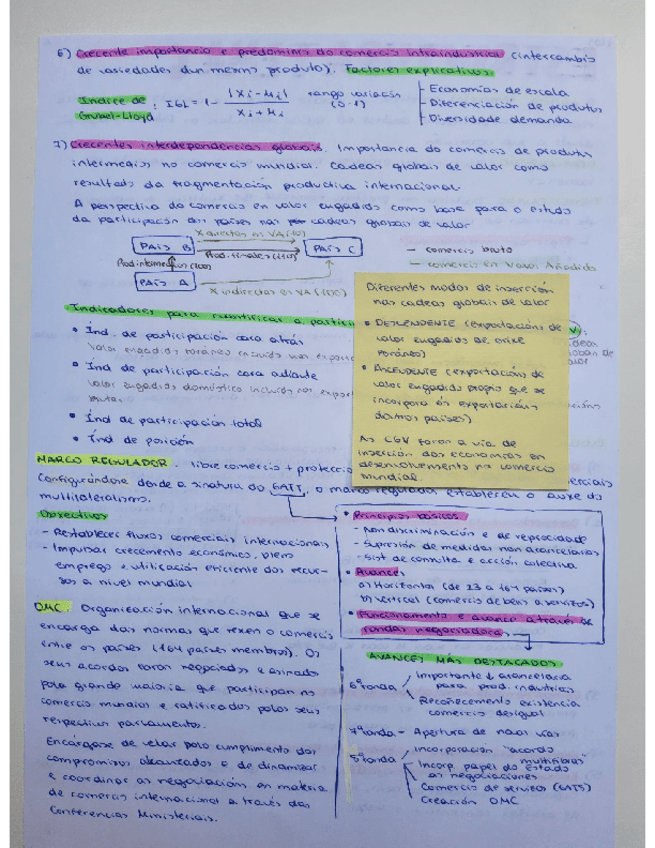 6) Crecente importancia e predominio do comercio intraindustrial (intercambio
de variedades dun mesmo produto). Factores explicativos:
Índice de Grubel-Lloyd : IGL = 1 - |Xi - Mi| / Xi + Mi rango variación (0-1)
Economías de escala
Diferenciación de produtos
Diversidade demanda
7) Crecentes interdependencias globais. Importancia do comercio de produtos
intermedios no comercio mundial. Cadeas globais de valor como
resultado da fragmentación productiva internacional.
A perspectiva do comercio en valor engadido como base para o estudo
da participación dos países nas cadeas globais de valor
X directas en VA (10)
PAÍS B Prod. finales (110) PAÍS C
Prod. intermedios (100)
PAÍS A
X indirectas en VA (100)
- comercio bruto
- comercio en Valor Añadido
Indicadores para cuantificar a partici
• Índ. de participación cara atrás
Valor engadido foráneo incluído nas export
• Índ de participación cara adiante
Valor engadido doméstico incluído nas export
brutas
• Índ de participación total
• Índ de posición
Diferentes modos de inserción
nas cadeas globais de valor
• DESCENDENTE (exportación de
valor engadido de orixe
foráneo)
• ASCENDENTE (exportación de
valor engadido propio que se
incorpora ás exportacións
doutros países)
As CGV foron a vía de
inserción das economías en
desenvolvemento no comercio
mundial.
MARCO REGULADOR. libre comercio + proteccio
Configurándose dende a sinatura do GATT, o marco regulador estableceu o auxe do
multilateralismo.
Obxectivos
- Restablecer fluxos comerciais internacionais
- Impulsar crecemento económico, pleno
emprego e utilización eficiente dos recur-
sos a nivel mundial
• Principios básicos.
- Non discriminación e de reprocidade
- Supresión de medidas non arancelarias
- Sist. de consulta e acción colectiva
• Avances
a) Horizontal (de 23 a 164 países)
b) Vertical (comercio de bens a servizos)
• Funcionamento e avance a través de
rondas negociadoras
OMC. Organización internacional que se
encarga das normas que rexen o comercio
entre os países (164 países membros). Os
seus acordos foron negociados e asinados
pola grande maioría que participan no
comercio mundial e ratificados polos seus
respectivos parlamentos.
Encárgase de velar polo cumplimento dos
compromisos alcanzados e de dinamizar
e coordinar as negociación en materia
de comercio internacional a través das
Conferencias Ministeriais.
AVANCES MÁS DESTACADOS
6ª ronda Importante ↓ arancelaria
para prod. industriais
Recoñecemento existencia
comercio desigual
7ª ronda - Apertura de novas vías
8ª ronda Incorporación "acordo
multifibras"
Incorp papel do Estado
as negociaciones
Comercio de servicios (GATS)
Creación OMC